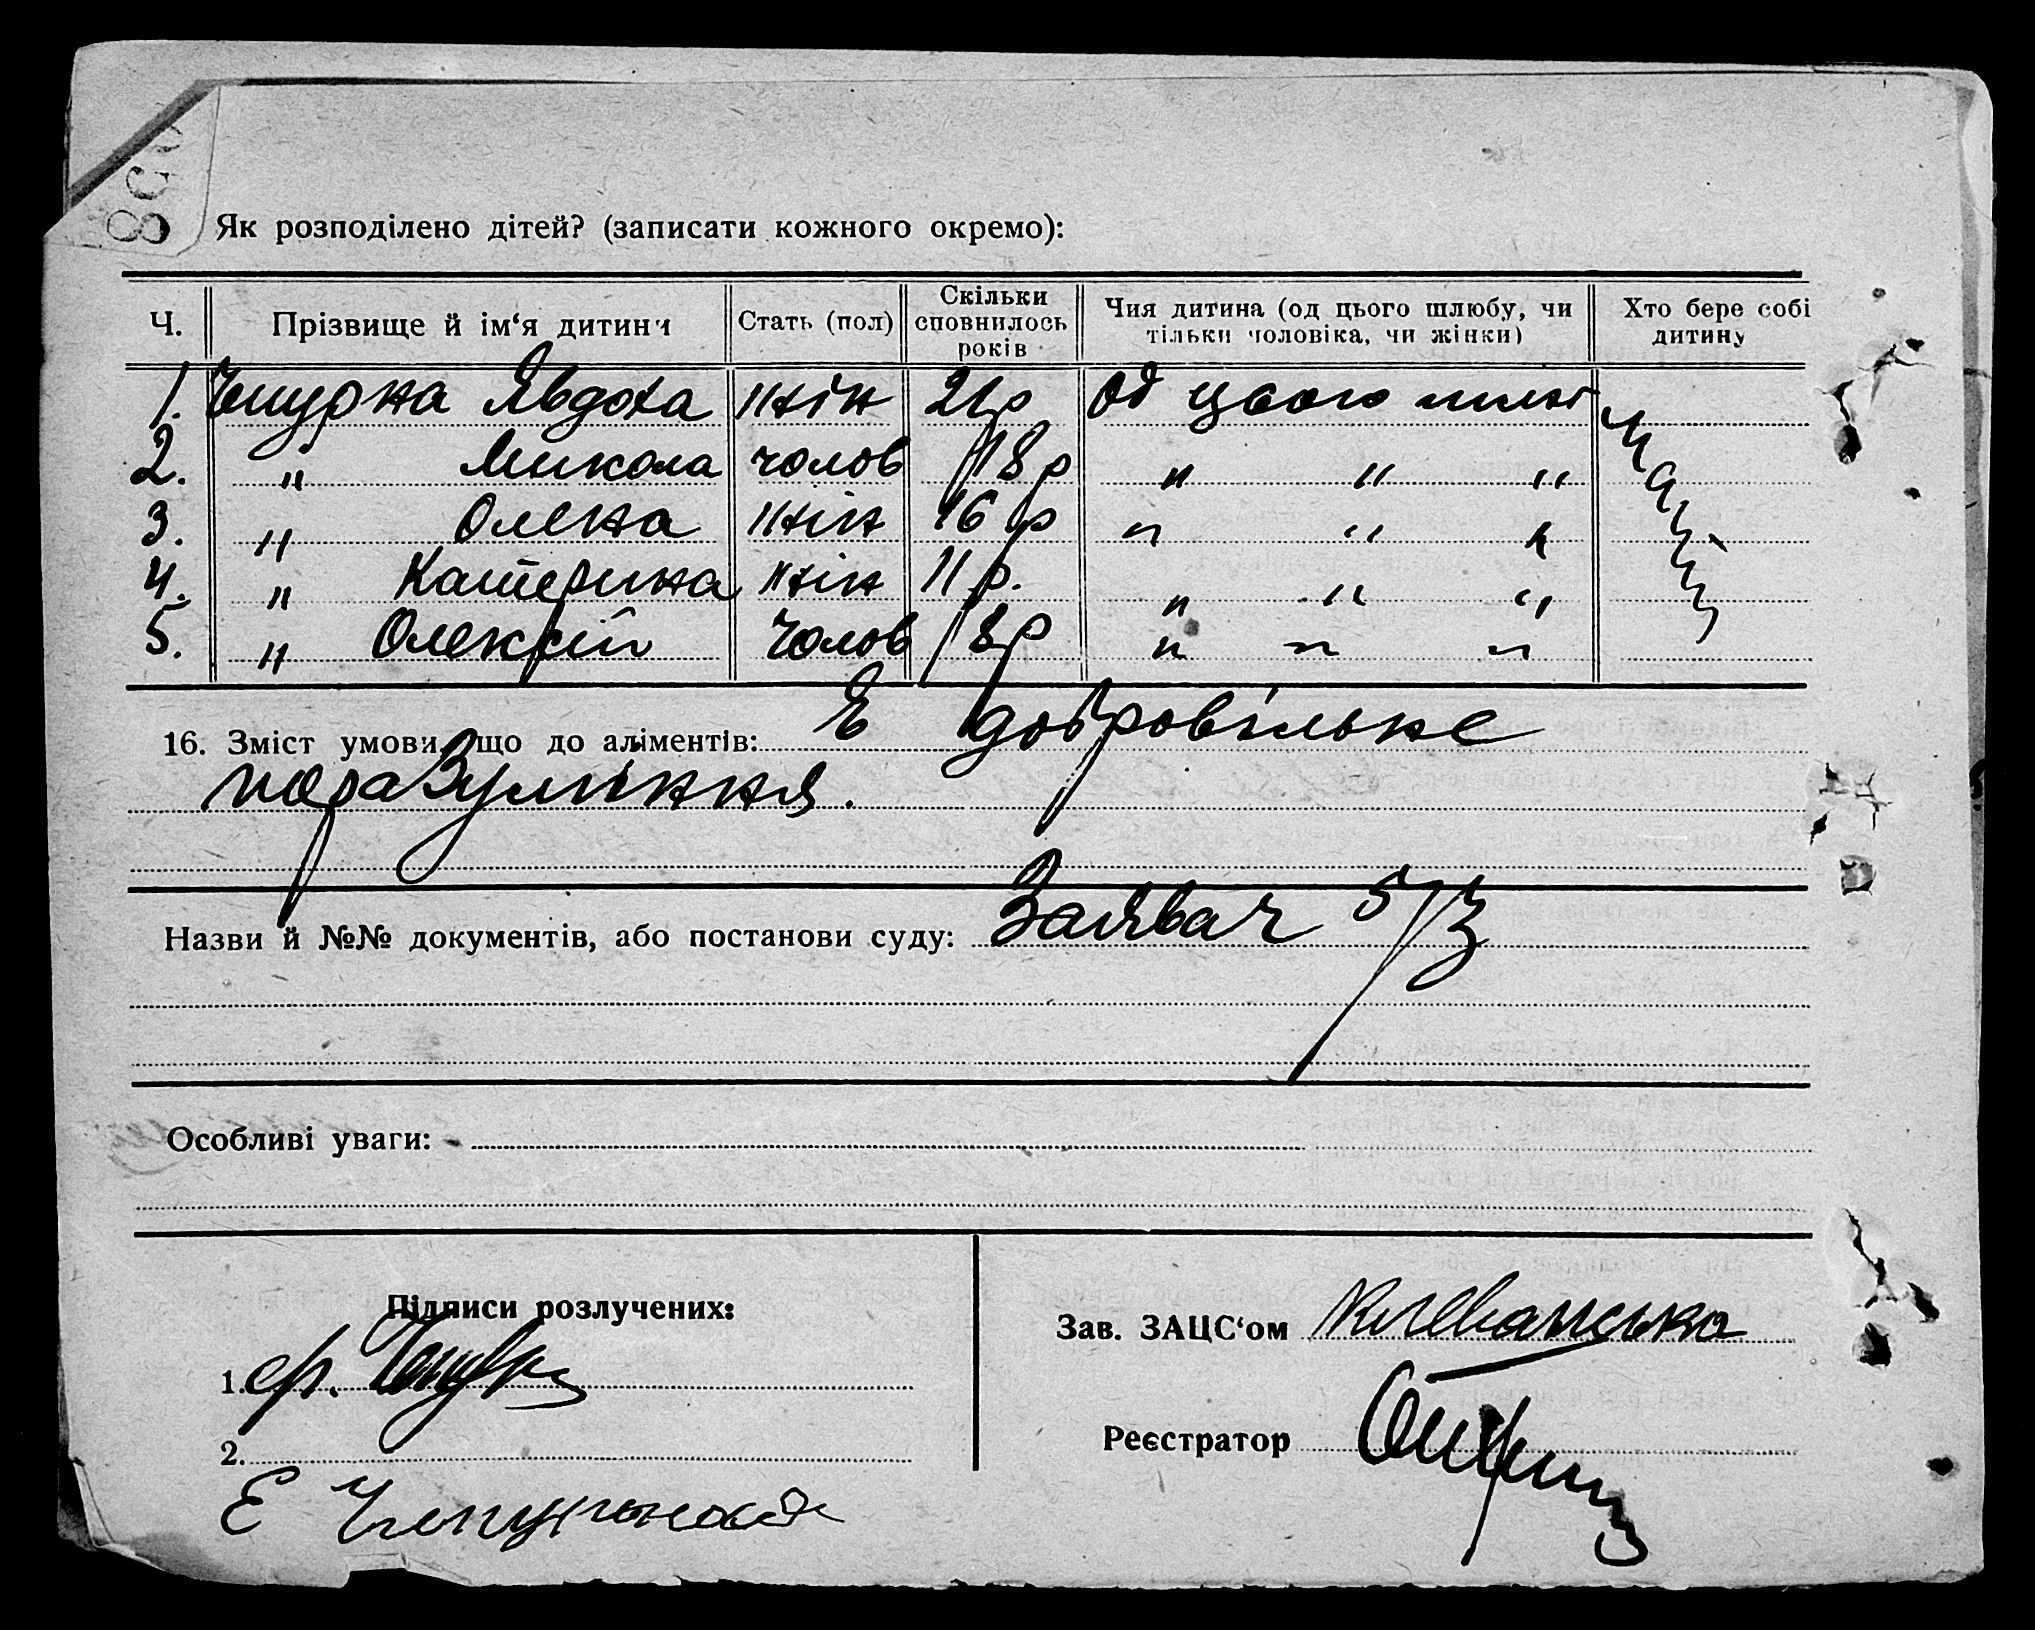 Як розподілено дітей? (записати кожного окремо):
Ч. Прізвище й ім‘я дитини Стать (пол) Скільки сповнилось років Чия дитина (од цього шлюбу, чи тільки чоловіка, чи жінки) Хто бере собі дитину
1. Явдоха жін 21 р Од цього
2. " Микола чолов 18 р " " "
3. " Олена жін 16 р " " "
4. " Катерина жін 11 р. " " "
5. " Олексій чолов 8 р " " "
16. Зміст умови що до аліментів: Є добровільне
поразуміння.
Назви й №№ документів, або постанови суду: 5/3
Особливі уваги:
Підписи розлучених:
1.
2.
Зав. ЗАЦС‘ом
Реєстратор